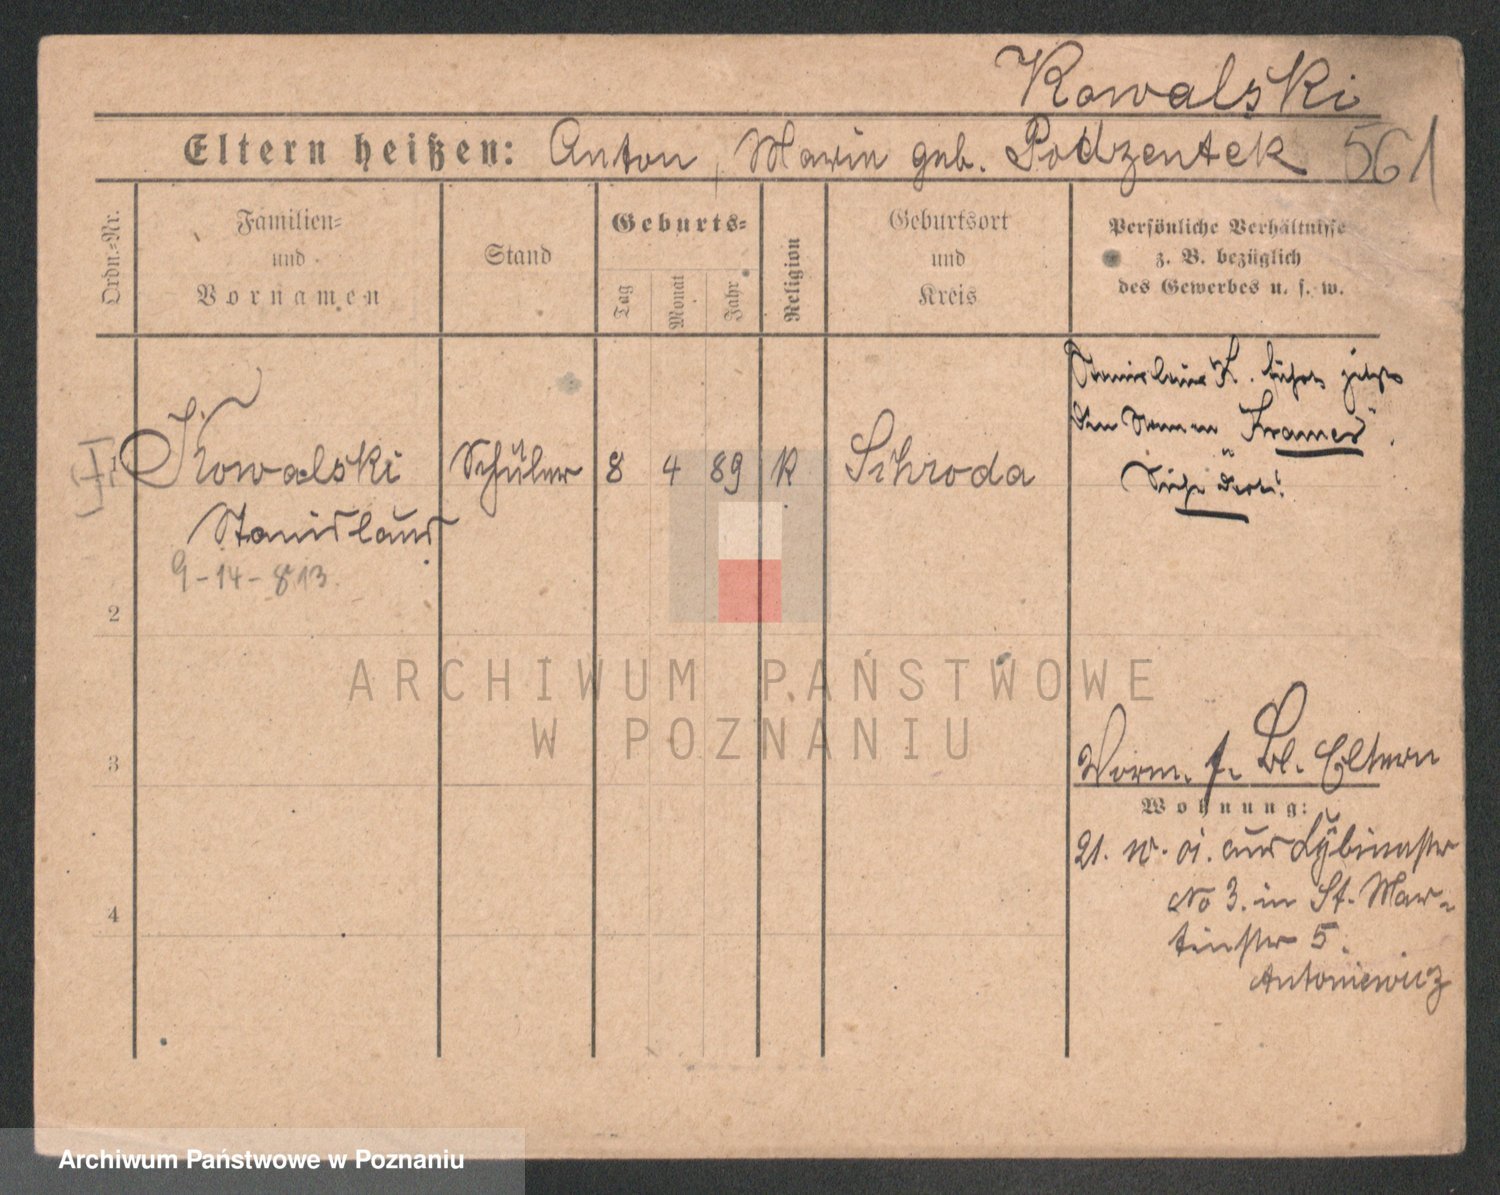 Kowalski
Eltern heißen: Anton, Marie geb. Podzentek 561
Ordn.-Nr.
Familien-
und
Vornamen
Stand
Geburts-
Tag
Monat
Jahr
Religion
Geburtsort
und
Kreis
Persönliche Verhältnisse
z. B. bezüglich
des Gewerbes u. s. w.
Stanislaus K. führt jetzt
den Namen "Kramer".
Siehe dort!
1 Kowalski Schüler 8 4 89 K Schroda
Stanislaus
9-14-813.
2
ARCHIWUM PAŃSTWOWE
W POZNANIU
3
4
Eltern
Wohnung:
No 3. in St. Mar-
tinstr 5.
Antoniewicz
Archiwum Państwowe w Poznaniu